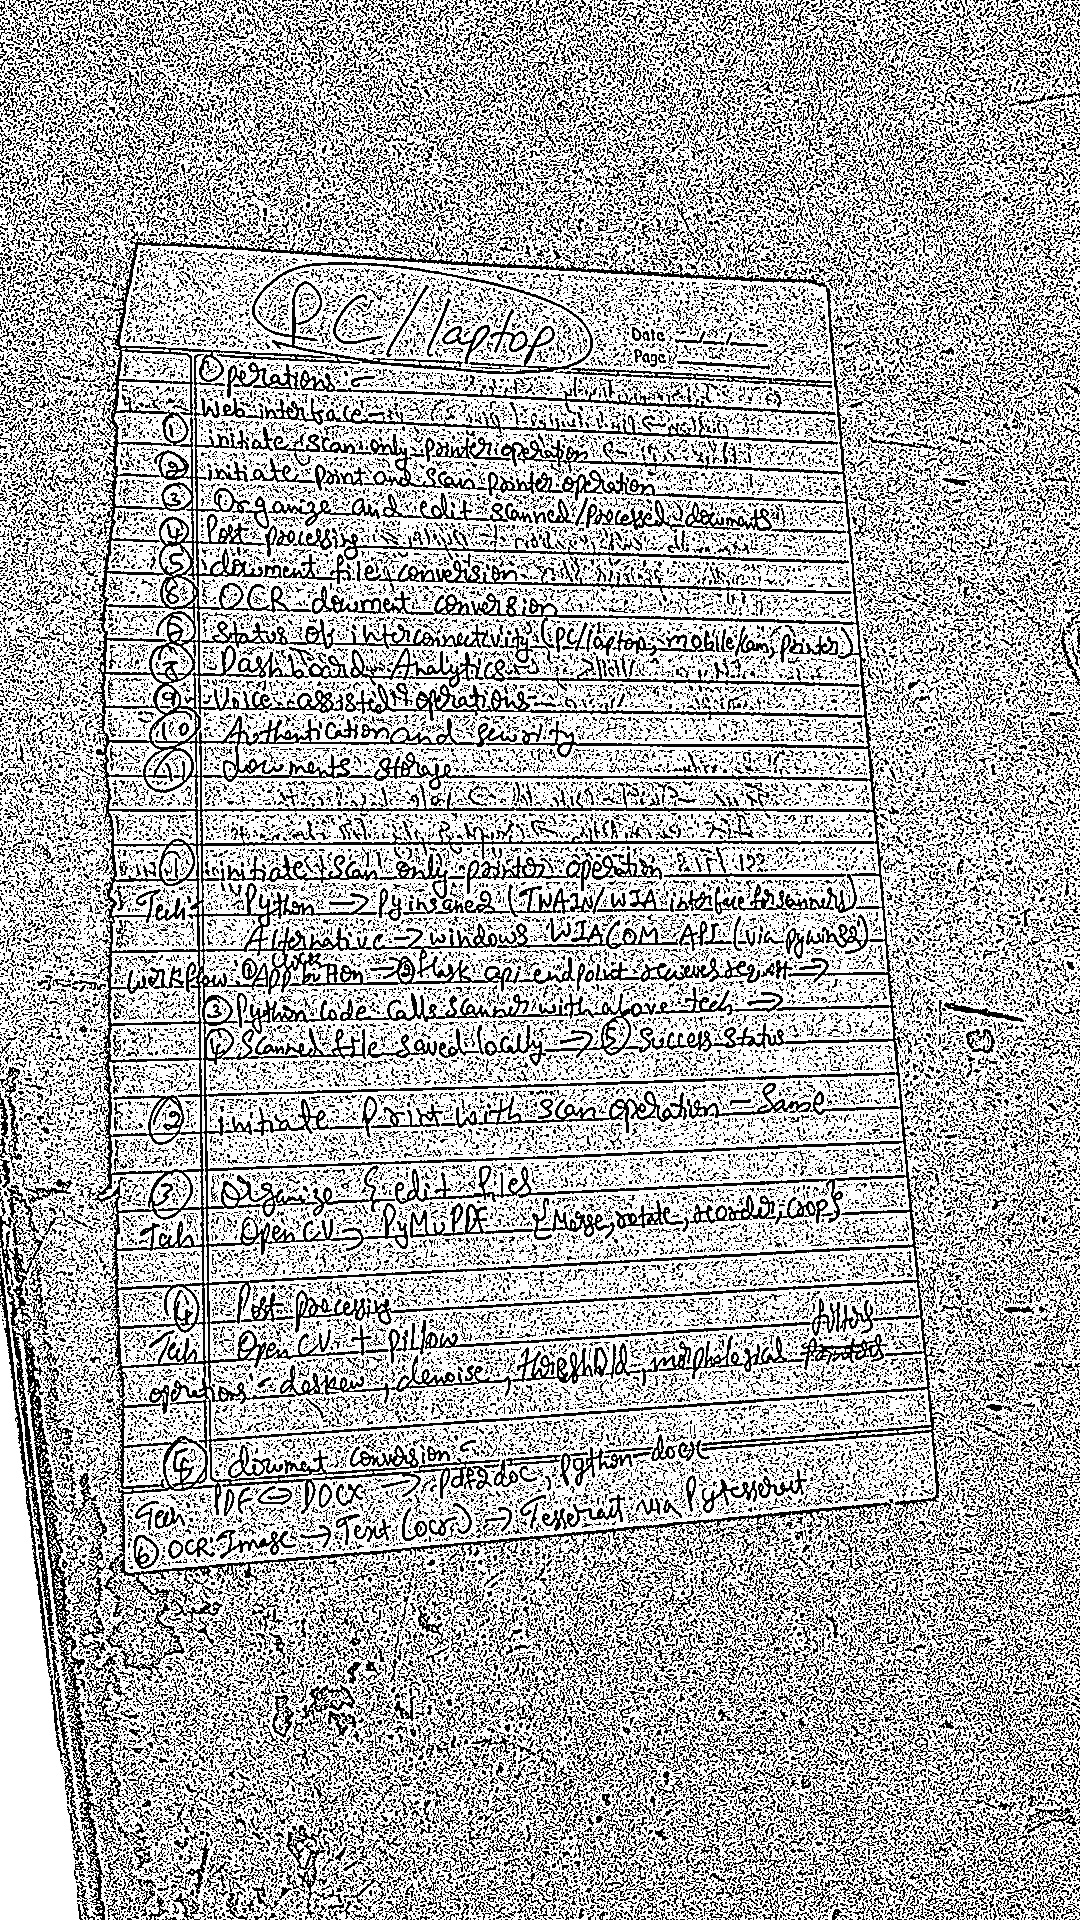 PC/laptop
Date
Page
Operations :-
Web interface -
① initiate scan only printer operation
② initiate print and scan printer operation
③ Organize and edit scanned/processed documents
④ Post processing
⑤ document file conversion
⑥ OCR document conversion
Status of interconnectivity (PC/laptop, mobile/cam, printer)
Dashboard Analytics
⑨ Voice assisted operations
⑩ Authentication and security
⑪ documents storage
① initiate scan only printer operation
Tech:- Python → Pyinsane2 (TWAIN/WIA interface for scanners)
Alternative → windows WIA COM API (via pywin32)
workflow: ① App button → ② flask api endpoint request →
③ Python code calls scanner with above tech →
④ Scanned file saved locally → ⑤ Success status
② initiate Print with scan operation - Same
③ Organize & edit files
Tech OpenCV → PyMuPDF {Merge, rotate, reorder, crop}
④ Post processing
Tech OpenCV + pillow
operations:- deskew, denoise, threshold, morphological filters
⑤ document conversion :-
Tech PDF ⇔ DOCX → pdf2doc, Python-docx
⑥ OCR: Image → Text (ocr) → Tesseract via Pytesseract